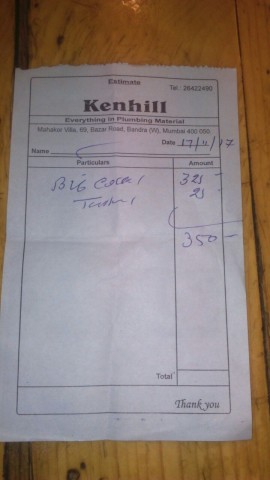 Estimate
Tel.: 26422490
Kenhill
Everything in Plumbing Material
Bazar Road, Bandra (W), Mumbai 400 050.
Date 17/11/17
Name
Particulars Amount
Big 325 -
25
350 -
Total
Thank you